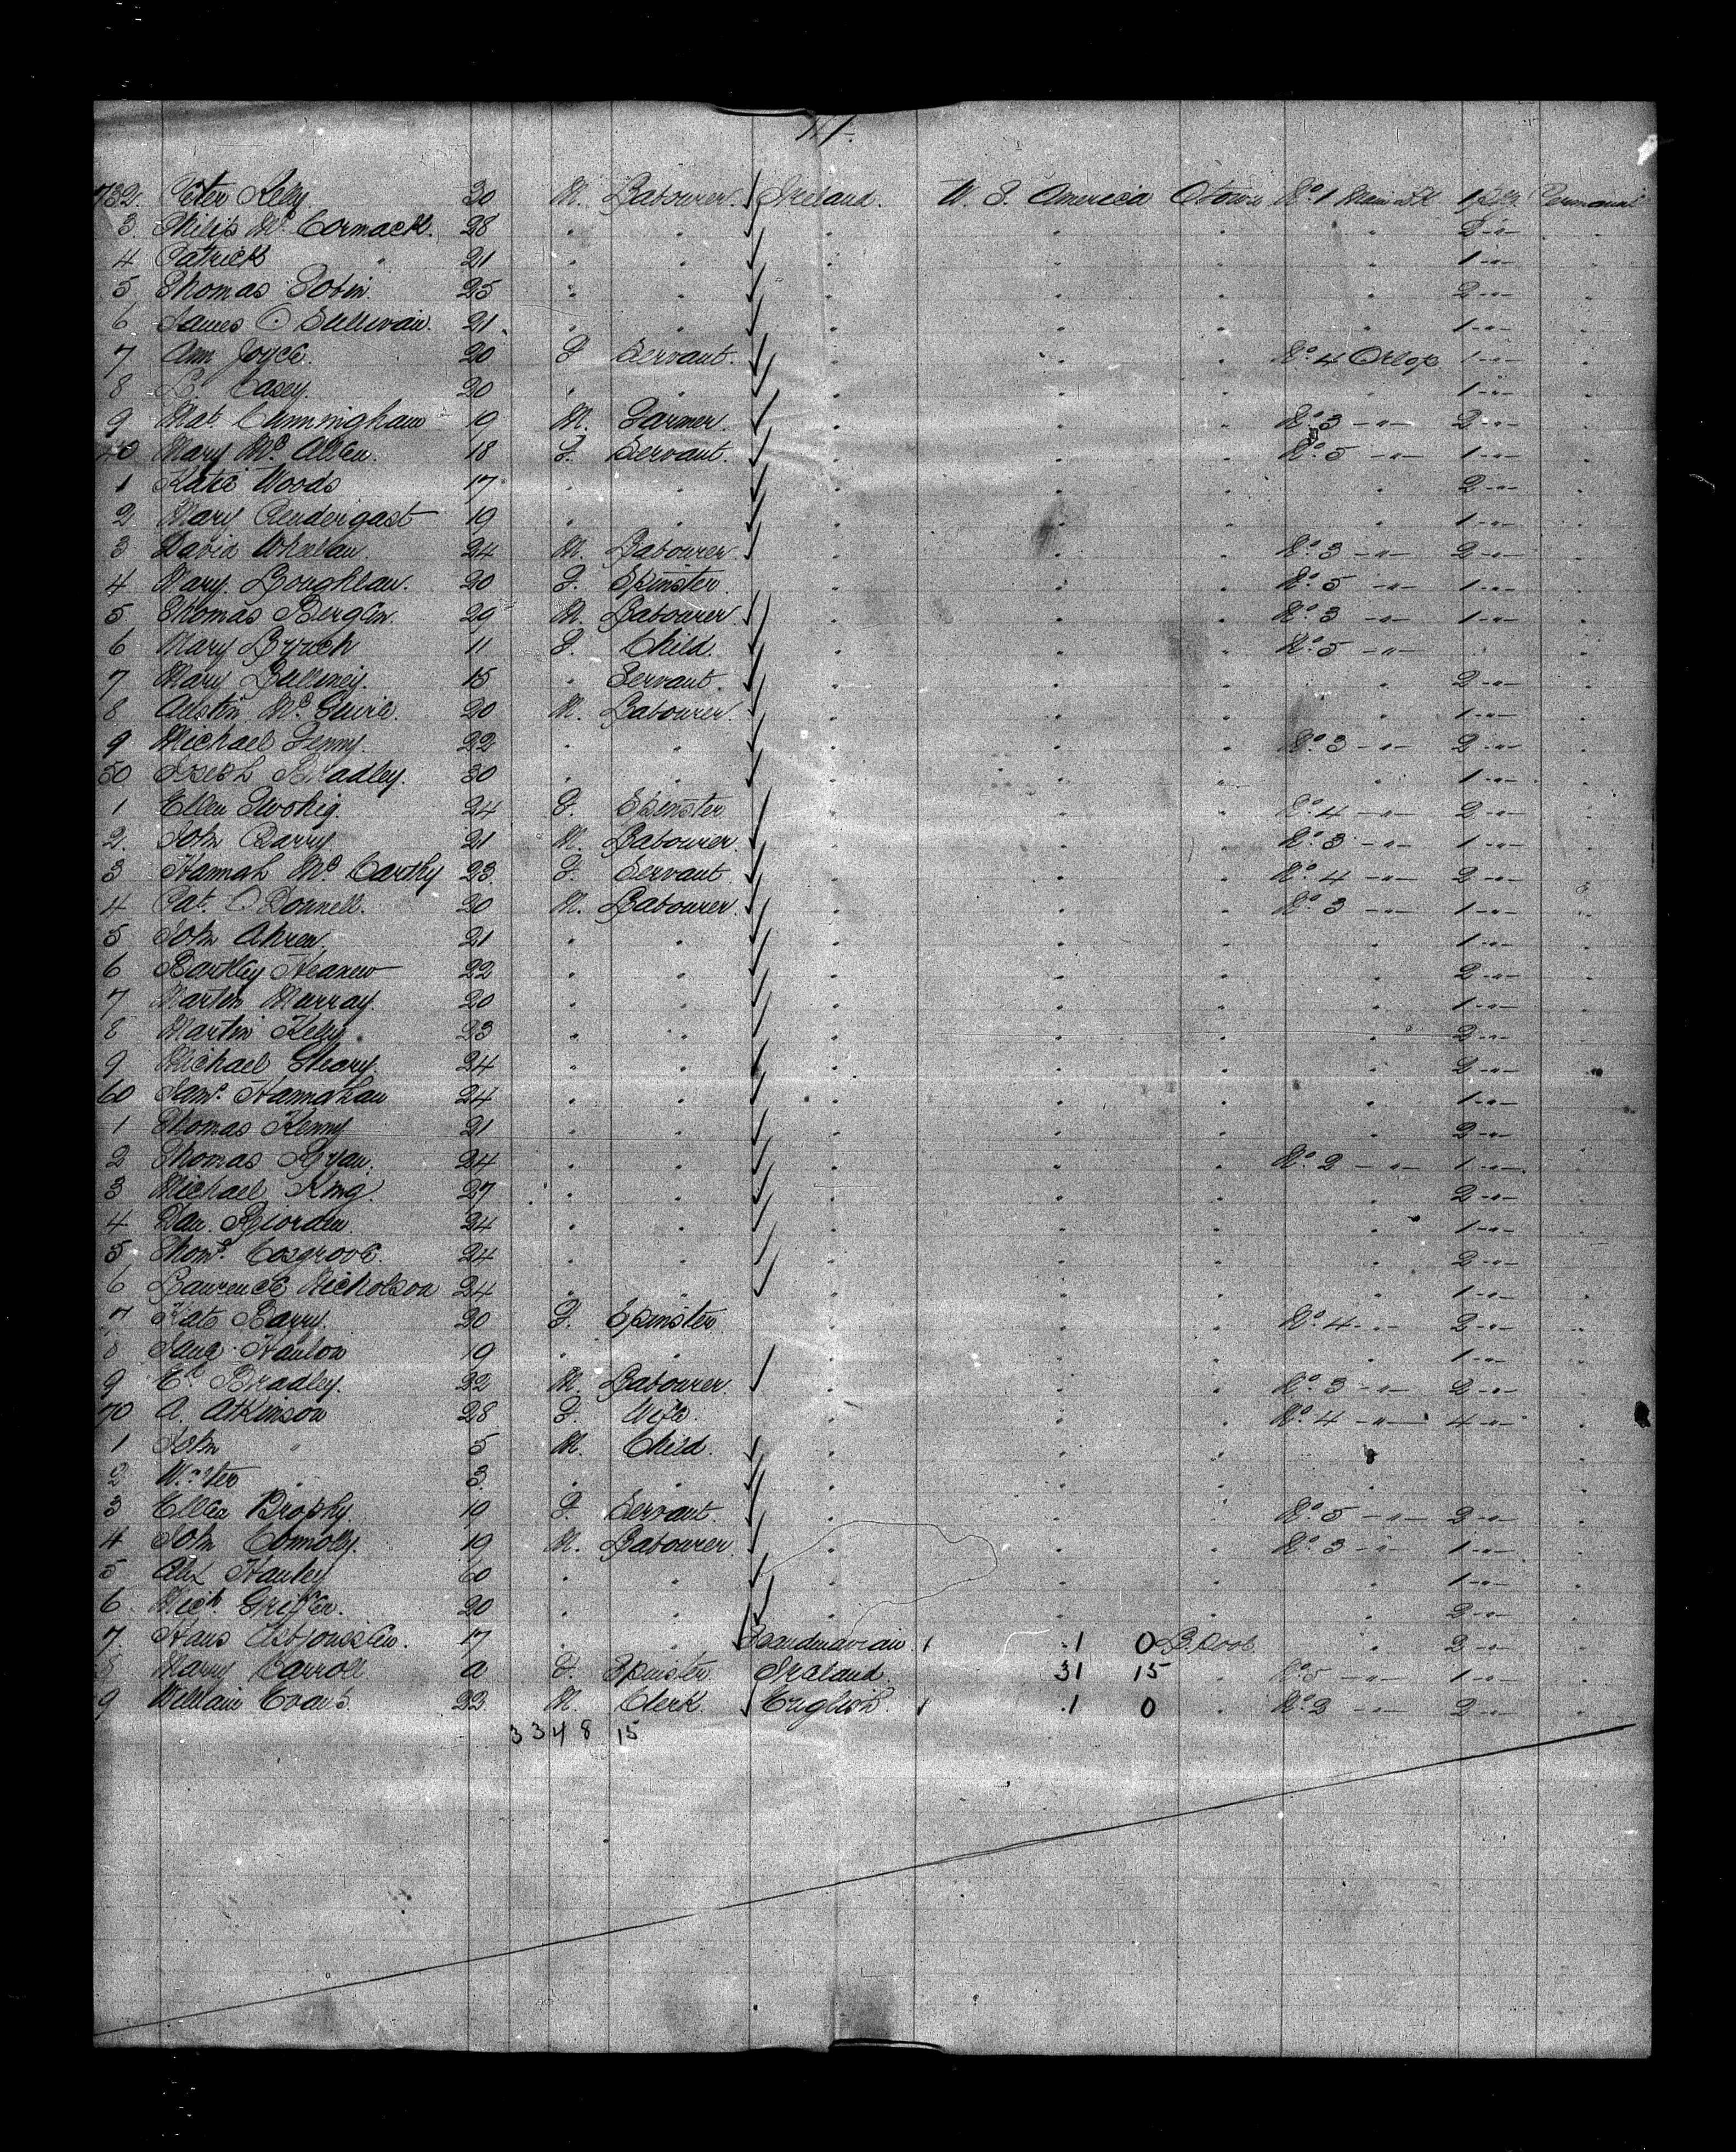 17.
732. Peter Kelly. 30 M. Labourer. Ireland. U. S. America Qtown No. 1 Main Dk 1 Permanent
3 Philip Mc Cormack. 28 " " " " " " 2 -"- "
4 Patrick " 21 " " " " " " 1 -"- "
5 Thomas Tobin. 25 " " " " " " 2 -"- "
6 James O Sullivan. 21 " " " " " " 1 -"- "
7 Ann Joyce. 20 F Servant. " " " No. 4 Orlop 1 -"- "
8 Casey. 20 " " " " " 1 -"- "
9 Mat. Cunningham 19 M. Farmer. " " " No. 3 -"- 2 -"- "
40 Mary Mc 18 F. Servant. " " " No. 5 -"- 1 -"- "
1 Katie Woods 17 " " " " " " 2 -"- "
2 Mary Prendergast 19 " " " " " " 1 -"- "
3 David Whelan. 24 M. Labourer. " " " No. 3 -"- 2 -"- "
4 Mary Loughlan. 20 F. Spinster. " " " No. 5 -"- 1 -"- "
5 Thomas Bergin. 29 M. Labourer. " " " No. 3 -"- 1 -"- "
6 Mary 11 F. Child. " " " No. 5 -"- "
7 Mary 15 " Servant. " " " " 2 -"- "
8 Austin Mc Guire. 20 M. Labourer. " " " " 1 -"- "
9 Michael 22 " " " " " No. 3 -"- 2 -"- "
50 Joseph Bradley. 30 " " " " " " 1 -"- "
1 Ellen Twohig. 24 F. Spinster " " " No. 4 -"- 2 -"- "
2. John Barry 21 M. Labourer. " " " No. 3 -"- 1 -"- "
3 Hannah Mc Carthy 23 F. Servant " " " No. 4 -"- 2 -"- "
4 Pat. O Donnell. 20 M. Labourer. " " " No. 3 -"- 1 -"- "
5 John Ahren. 21 " " " " " " 1 -"- "
6 Bartley 22 " " " " " " 2 -"- "
7 Martin Murray. 20 " " " " " " 1 -"- "
8 Martin Kelly 23 " " " " " " 2 -"- "
9 Michael 24 " " " " " " 2 -"- "
60 Hannahan 24 " " " " " " 1 -"- "
1 Thomas Kenny 21 " " " " " " 2 -"- "
2 Thomas Ryan. 24 " " " " " No. 2 -"- 1 -"- "
3 Michael King 27 " " " " " " 2 -"- "
4 Dan. Riordan. 24 " " " " " " 1 -"- "
5 Thoms. Cosgrove. 24 " " " " " " 2 -"- "
6 Laurence Nicholson 24 " " " " " " 1 -"- "
7 Kate Barry. 20 F. Spinster. " " " No. 4 -"- 2 -"- "
8 Jane Hanlon 19 " " " " " " 1 -"- "
9 Bradley. 22 M. Labourer. " " " No. 3 -"- 2 -"- "
70 A. Atkinson 28 F. Wife. " " " No. 4 -"- 4 -"- "
1 John " 5 M. Child. " " " " "
2 " 3 " " " " " " "
3 Ellen Brophy. 19 F. Servant. " " " No. 5 -"- 2 -"- "
4 John Connolly. 19 M. Labourer. " " " No. 3 -"- 1 -"- "
5 Alex Hanley 60 " " " " " " 1 -"- "
6. Mich. Griffin. 20 " " " " " " 2 -"- "
7. Hans 17 " " Scandinavian. 1 1 0 L.Pool " 2 -"- "
8 Mary Carroll a F. Spinster Ireland 31 15 " No. 5 -"- 1 -"- "
9 William Evans. 23 M. Clerk. English. 1 1 0 " No. 2 -"- 2 -"- "
3348 15